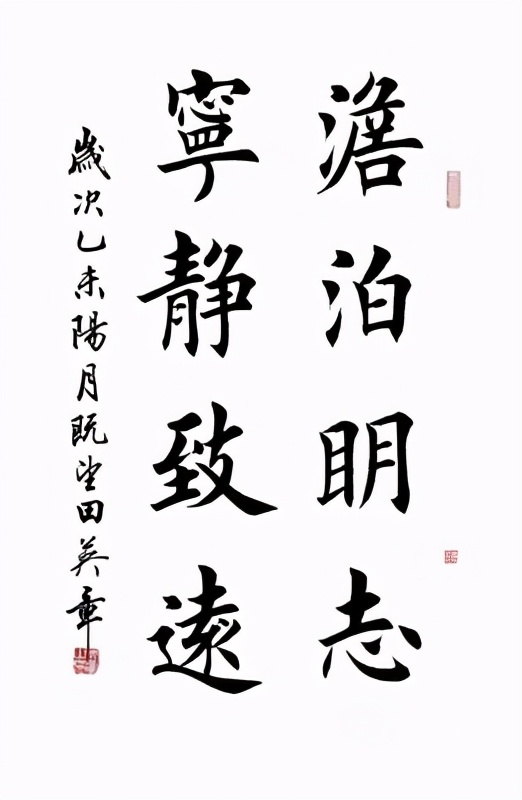 澹泊明志
寧靜致遠
歲次乙未陽月既望田英章